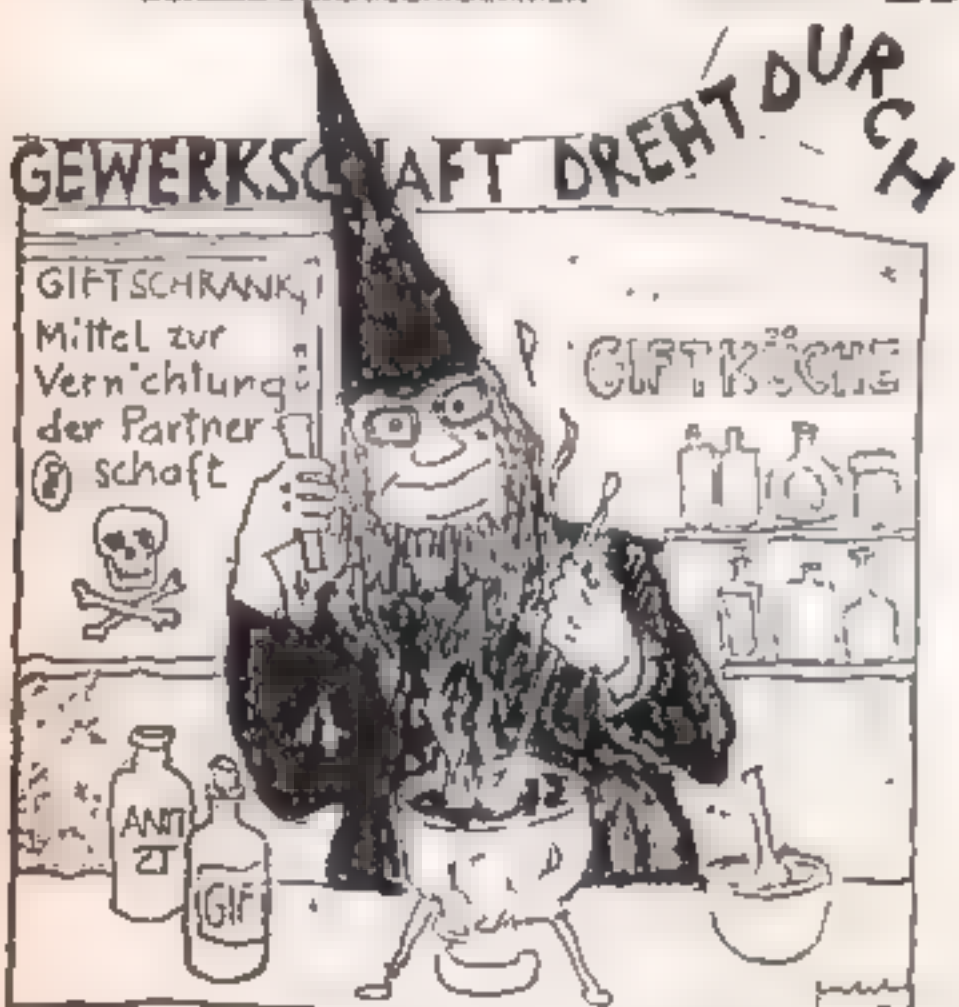 GEWERKSCHAFT DREHT DURCH
GIFTSCHRANK
Mittel zur
Vernichtung
der Partner
schaft
GIFTKÖCHE
ANTI
ZT
GIF